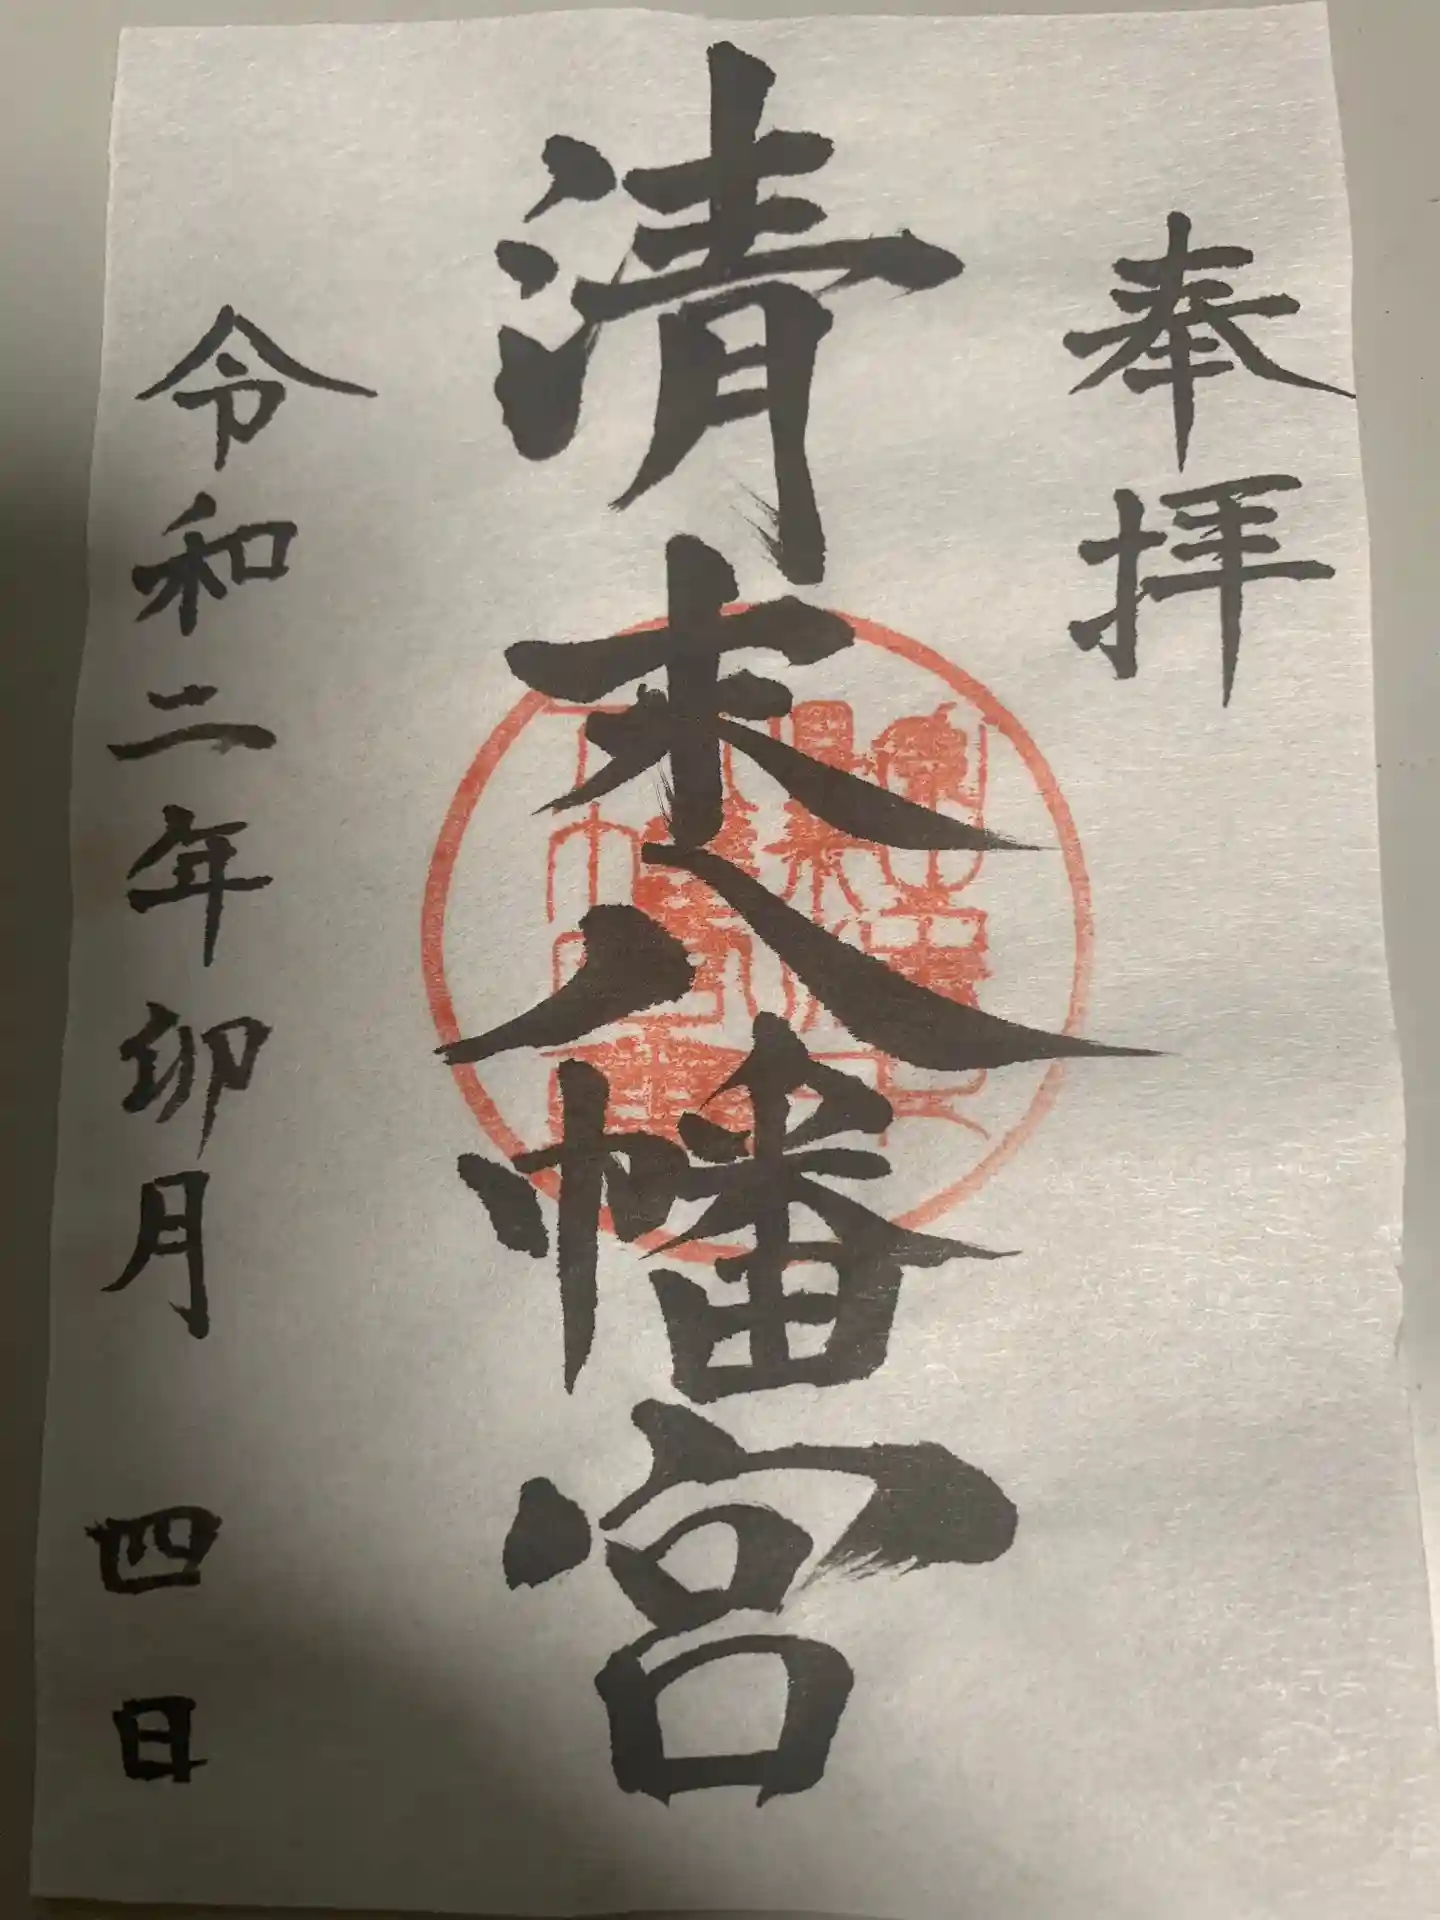 奉拝
清末八幡宮
令和二年卯月四日